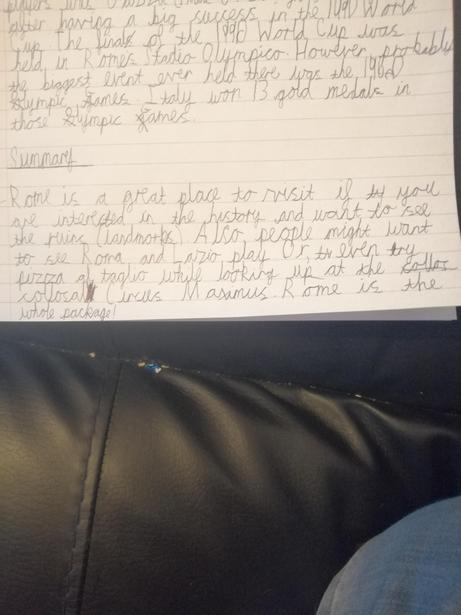 players
after having a big success in the 1990 World
Cup. The finals of the 1990 World Cup was
held in Rome's Stadio Olympico. However, probably
the biggest event ever held there was the 1960
Olympic Games. Italy won 13 gold medals in
those Olympic Games.
Summary
Rome is a great place to visit if you
are interested in the history and want to see
the ruins (landmarks). Also people might want
to see Roma and Lazio play. Or even try
pizza al taglio while looking up at the
colossal Circus Maximus. Rome is the
whole package!